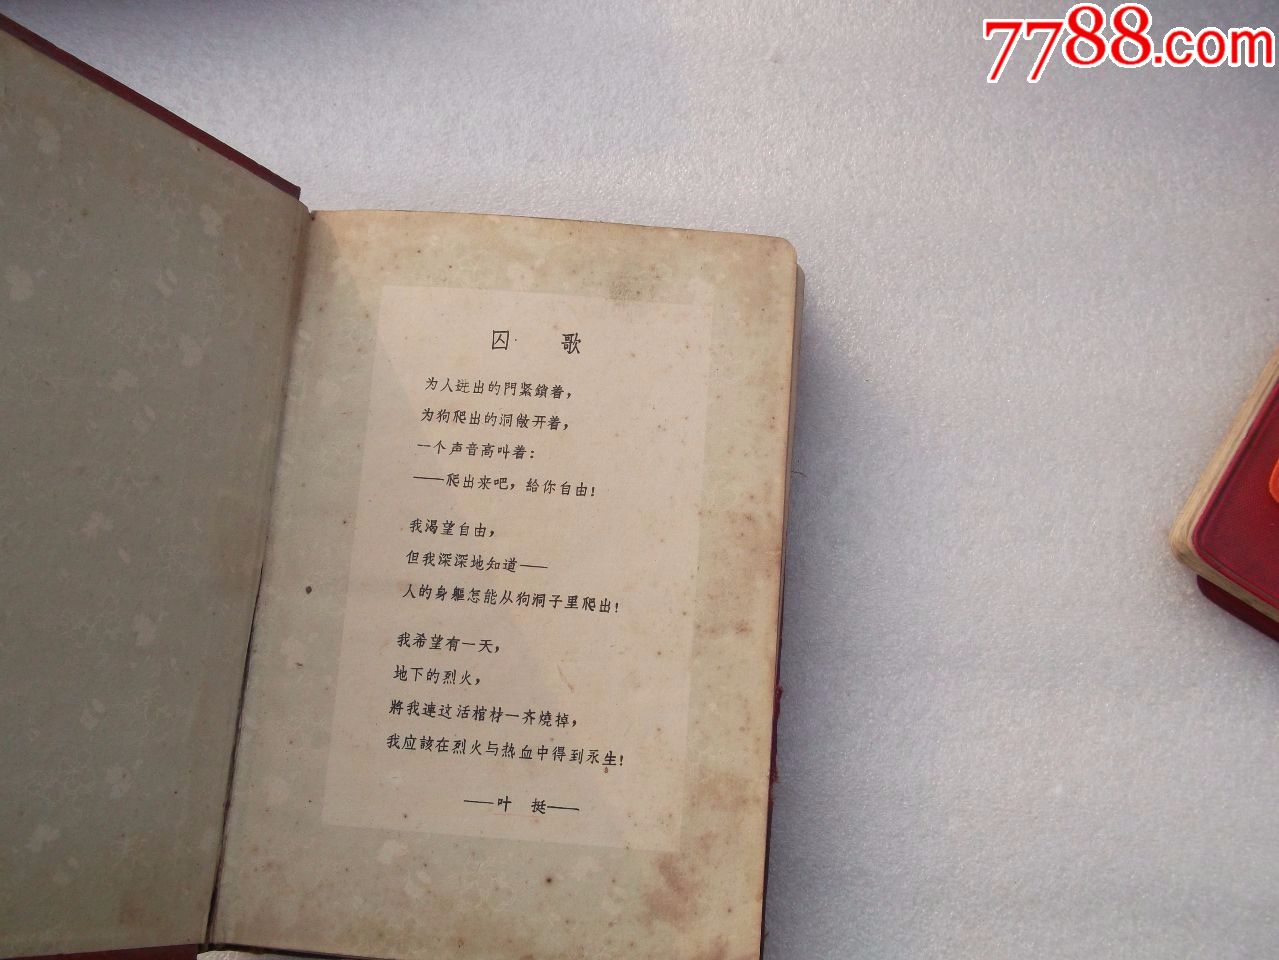 7788.com
囚 歌
为人进出的門紧鎖着，
为狗爬出的洞敞开着，
一个声音高叫着：
——爬出来吧，給你自由！
我渴望自由，
但我深深地知道——
人的身軀怎能从狗洞子里爬出！
我希望有一天，
地下的烈火，
將我連这活棺材一齐燒掉，
我应該在烈火与热血中得到永生！
——叶 挺——